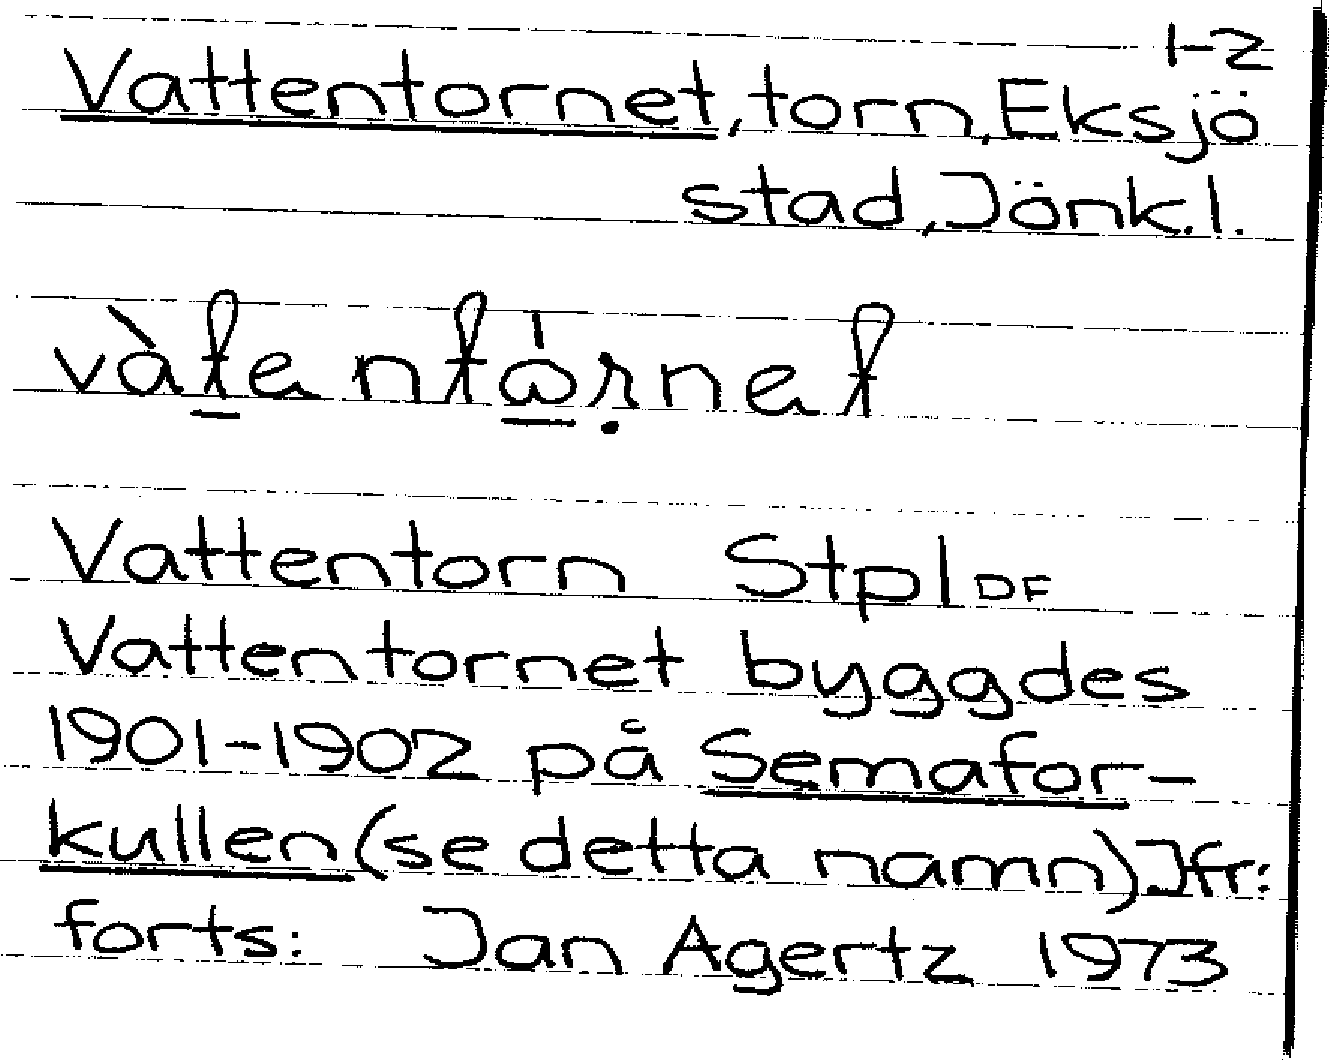 1-2
Vattentornet, torn, Eksjö
stad, Jönk.l.
vàtentåṛnet
Vattentorn Stpl DF
Vattentornet byggdes
1901-1902 på Semafor-
kullen (se detta namn). Jfr:
forts: Jan Agertz 1973